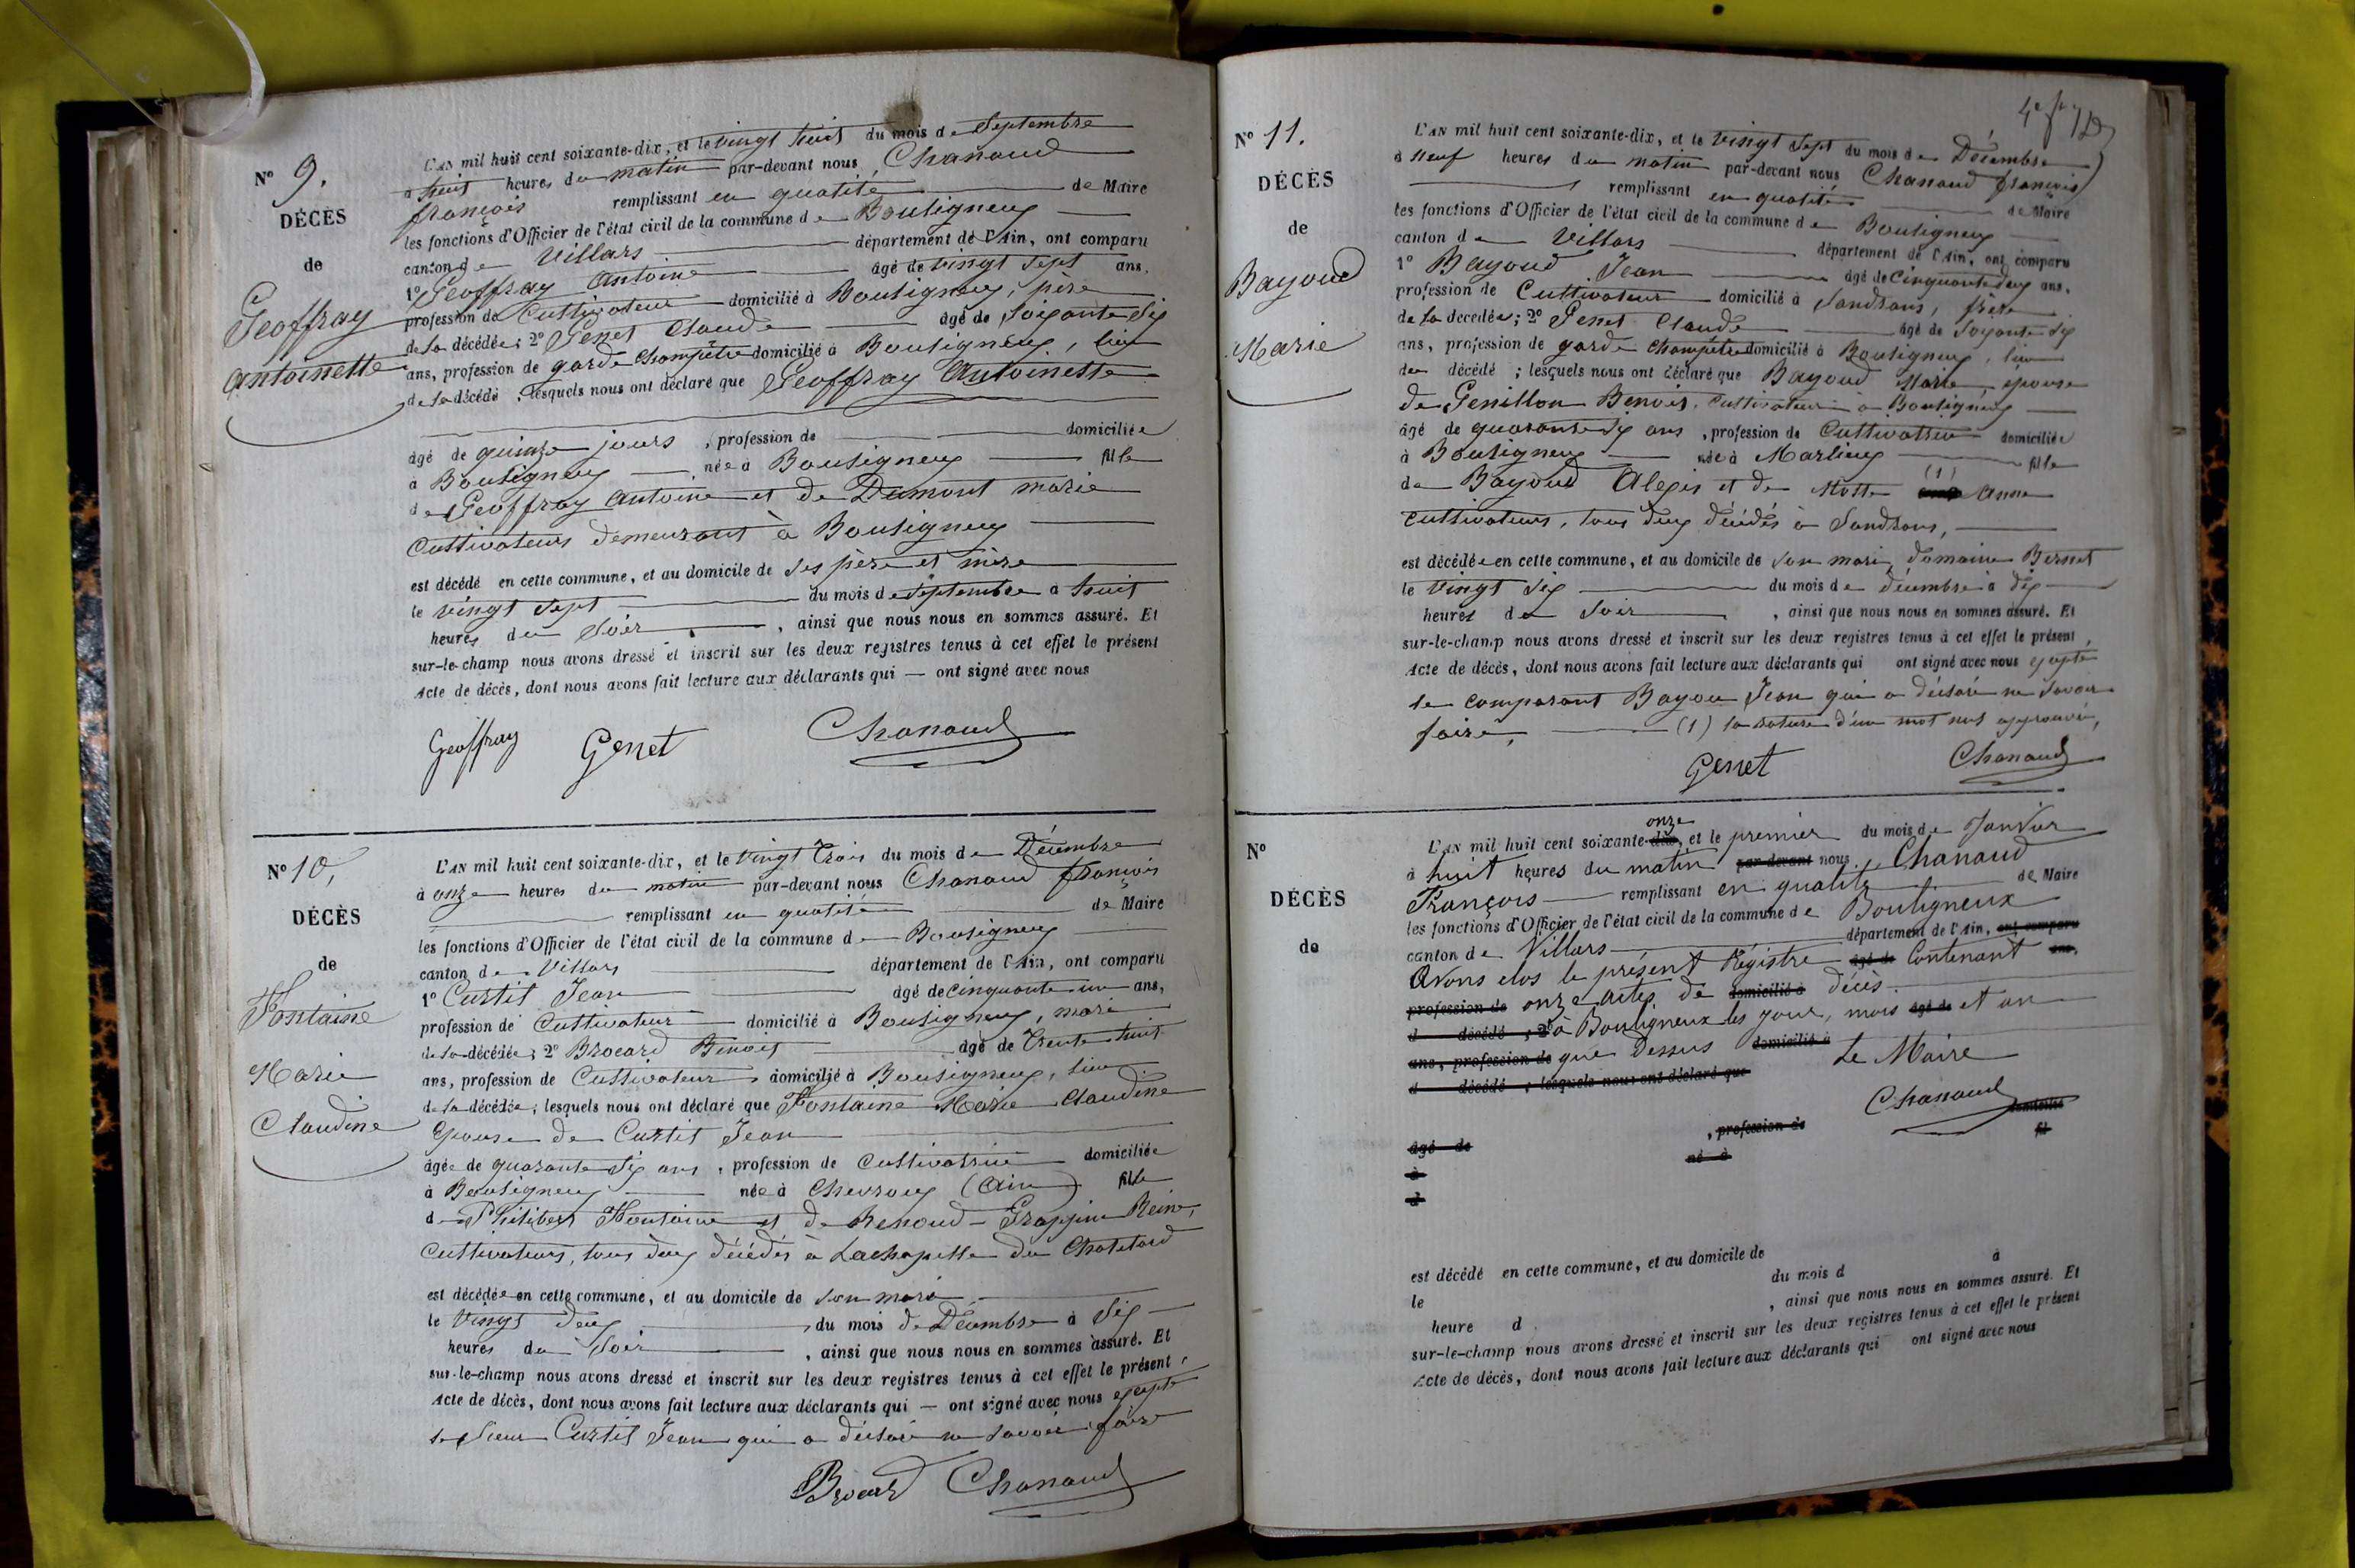 N° 9.
DÉCÈS
de
Geoffray
Antoinette
L'AN mil huit cent soixante-dix, et le vingt huit du mois de Septembre
à huit heures du matin par-devant nous Chanaud
françois remplissant en qualité de Maire
les fonctions d'Officier de l'état civil de la commune de Bouligneux
canton de Villars département de l'Ain, ont comparu
1° Geoffray Antoine âgé de vingt sept ans,
profession de Cultivateur domicilié à Bouligneux, père
de la décédée; 2° Genet Claude âgé de soixante six
ans, profession de garde champêtre domicilié à Bouligneux, lieu
de la décédé, lesquels nous ont déclaré que Geoffray Antoinette
âgé de quinze jours, profession de domiciliée
à Bouligneux née à Bouligneux fille
de Geoffray Antoine et de Dumont marie
Cultivateurs demeurant à Bouligneux
est décédé en cette commune, et au domicile de ses père et mère
le vingt sept du mois de septembre à huit
heures du soir, ainsi que nous nous en sommes assuré. Et
sur-le-champ nous avons dressé et inscrit sur les deux registres tenus à cet effet le présent
Acte de décès, dont nous avons fait lecture aux déclarants qui — ont signé avec nous
Geoffray Genet Chanaud
N° 10,
DÉCÈS
de
Fontaine
Marie
Claudine
L'AN mil huit cent soixante-dix, et le vingt trois du mois de Décembre
à onze heures du matin par-devant nous Chanaud françois
remplissant en qualité de Maire
les fonctions d'Officier de l'état civil de la commune de Bouligneux
canton de Villars département de l'Ain, ont comparu
1° Curtil Jean âgé de cinquante un ans,
profession de Cultivateur domicilié à Bouligneux, mari
de la décédée; 2° Brocard Benoit âgé de trente huit
ans, profession de Cultivateur, domicilié à Bouligneux, lieu
de la décédée; lesquels nous ont déclaré que Fontaine Marie Claudine
Epouse de Curtil Jean
âgée de quarante six ans, profession de cultivatrice domiciliée
à Bouligneux née à Chevroux (Ain) fille
de Philibert Fontaine et de Renoud-Grappin Reine,
Cultivateurs, tous deux décédés à Lachapelle du Chatelard
est décédée en cette commune, et au domicile de son mari
le Vingt deux, du mois de Décembre à six
heures du soir, ainsi que nous nous en sommes assuré. Et
sur-le-champ nous avons dressé et inscrit sur les deux registres tenus à cet effet le présent
Acte de décès, dont nous avons fait lecture aux déclarants qui — ont signé avec nous excepté
le sieur Curtil Jean qui a déclaré ne savoir faire
Brocard Chanaud
N° 11.
DÉCÈS
de
Bayoud
Marie
L'AN mil huit cent soixante-dix, et le vingt sept du mois de Décembre
à neuf heures du matin par-devant nous Chanaud françois
remplissant en qualité de Maire
les fonctions d'Officier de l'état civil de la commune de Bouligneux
canton de Villars département de l'Ain, ont comparu
1° Bayoud Jean âgé de cinquante deux ans,
profession de Cultivateur domicilié à Sandrans, frère
de la decedée; 2° Genet Claude âgé de soixante six
ans, profession de garde champêtre domicilié à Bouligneux, lieu
de décédé; lesquels nous ont déclaré que Bayoud Marie épouse
de Genillon Benoit, Cultivateur à Bouligneux
âgé de quarante six ans, profession de Cultivatrice domiciliée
à Bouligneux née à Marlieux fille
de Bayoud Alexis et de Motte (1) Anne
cultivateurs, tous deux décédés à Sandrans,
est décédée en cette commune, et au domicile de son mari, domaine Bernet
le vingt six du mois de décembre à dix
heures du soir, ainsi que nous nous en sommes assuré. Et
sur-le-champ nous avons dressé et inscrit sur les deux registres tenus à cet effet le présent,
Acte de décès, dont nous avons fait lecture aux déclarants qui ont signé avec nous excepté
le comparant Bayou Jean qui a déclaré ne savoir
faire, (1) la rature d'un mot nul approuvé,
Genet Chanaud
N°
DÉCÈS
de
onze
L'AN mil huit cent soixante-dix, et le premier du mois de Janvier
à huit heures du matin par-devant nous, Chanaud
François remplissant en qualité de Maire
les fonctions d'Officier de l'état civil de la commune de Bouligneux
canton de Villars département de l'Ain, ont comparu
Avons clos le présent Régistre âgé de Contenant ans,
profession de onze actes de domicilié à décès.
d décédé; 2° à Bouligneux les jour, mois âgé de et an
ans, profession de que dessus domicilié à Le Maire
d décédé; lesquels nous ont déclaré que
Chanaud
âgé de, profession de domicilié
à né à fil
d
est décédé en cette commune, et au domicile de
le du mois d à
heure d, ainsi que nous nous en sommes assuré. Et
sur-le-champ nous avons dressé et inscrit sur les deux registres tenus à cet effet le présent
Acte de décès, dont nous avons fait lecture aux déclarants qui ont signé avec nous